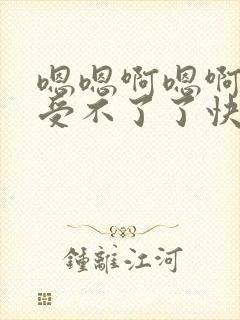 嗯嗯啊嗯啊
受不了了快
鍾離江河